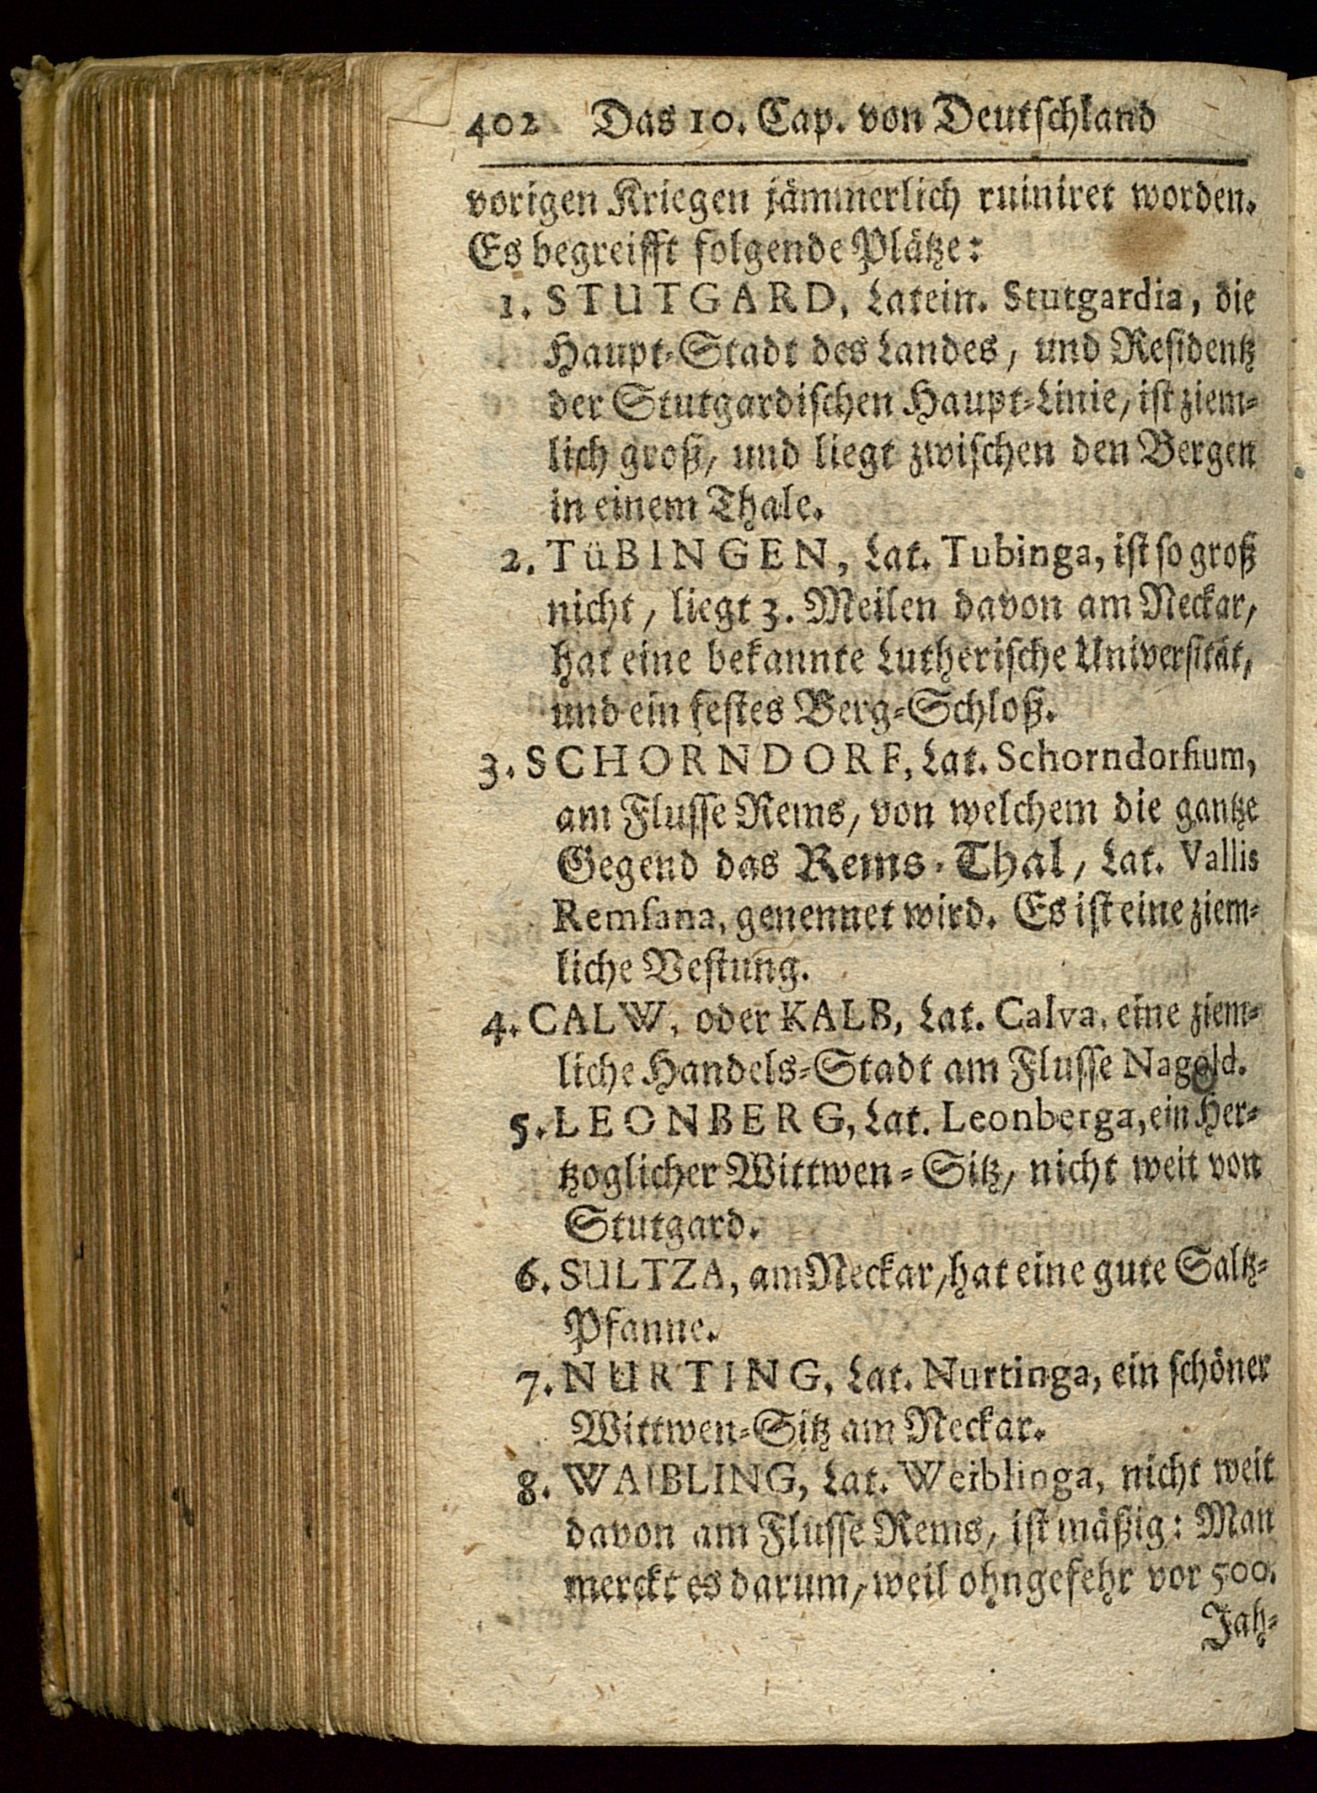 402 Das 10. Cap. von Deutschland
vorigen Kriegen jämmerlich ruiniret worden.
Es begreifft folgende Plätze:
1. STUTGARD, Latein. Stutgardia, die
Haupt-Stadt des Landes, und Residentz
der Stutgardischen Haupt-Linie, ist ziem-
lich groß, und liegt zwischen den Bergen
in einem Thale.
2. TüBINGEN, Lat. Tubinga, ist so groß
nicht, liegt 3. Meilen davon am Neckar,
hat eine bekannte Lutherische Universität,
und ein festes Berg-Schloß.
3. SCHORNDORF, Lat. Schorndorfium,
am Flusse Rems, von welchem die gantze
Gegend das Rems-Thal, Lat. Vallis
Remsana, genennet wird. Es ist eine ziem-
liche Vestung.
4. CALW, oder KALB, Lat. Calva, eine ziem-
liche Handels-Stadt am Flusse Nagold.
5. LEONBERG, Lat. Leonberga, ein Her-
tzoglicher Wittwen-Sitz, nicht weit von
Stutgard.
6. SULTZA, am Neckar, hat eine gute Saltz-
Pfanne.
7. NURTING, Lat. Nurtinga, ein schöner
Wittwen-Sitz am Neckar.
8. WAIBLING, Lat. Weiblinga, nicht weit
davon am Flusse Rems, ist mäßig: Man
merckt es darum, weil ohngefehr vor 500.
Jah-